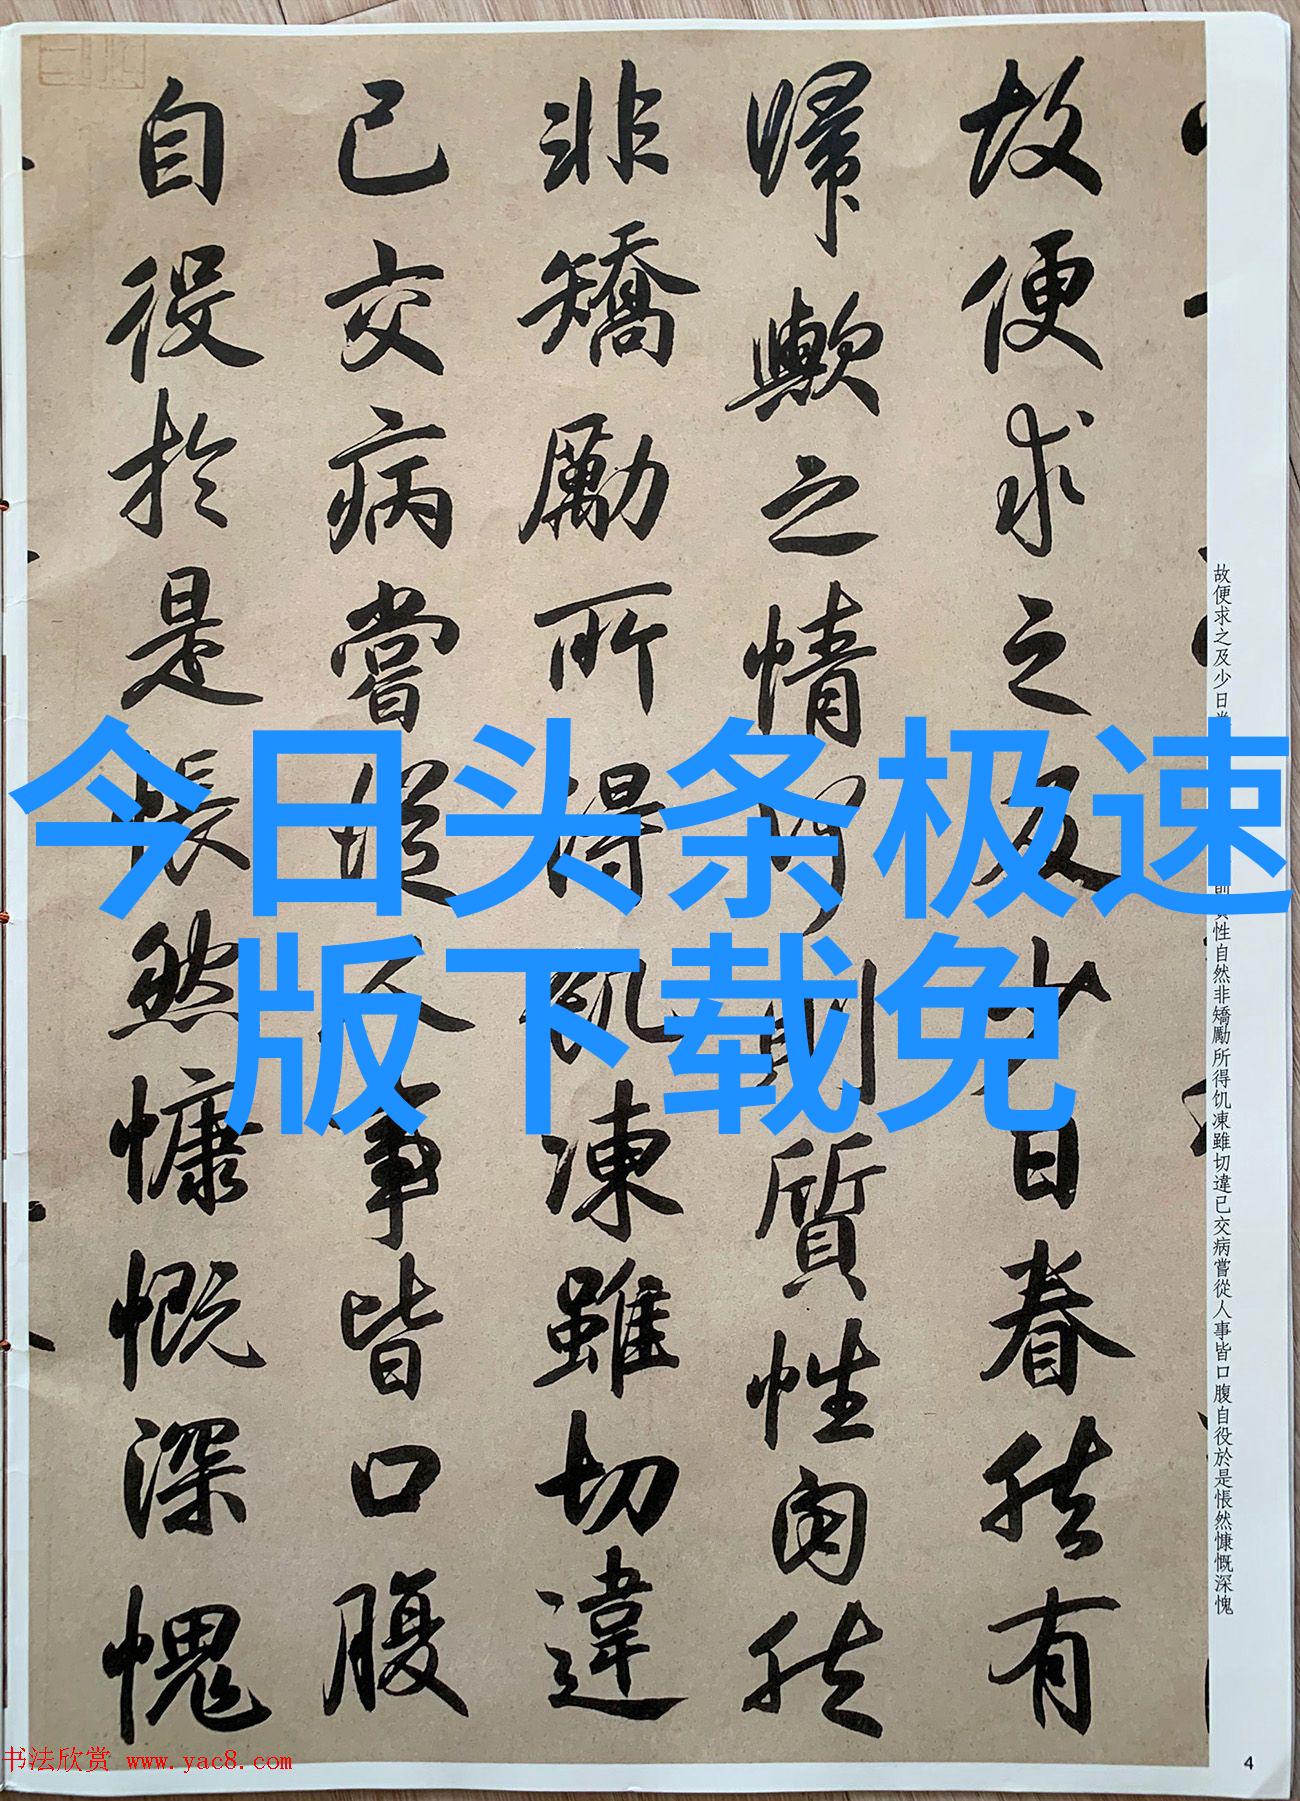 故便求之及少日眷然有
歸歟之情何則質性自然
非矯勵所得飢凍雖切違
已交病嘗從人事皆口腹
自役於是悵然慷慨深愧
今日头条极速
版下载免
故便求之及少日
性自然非矯勵所得饥凍雖切違已交病嘗從人事皆口腹自役於是悵然慷慨深愧
书法欣赏 www.yac8.com
4